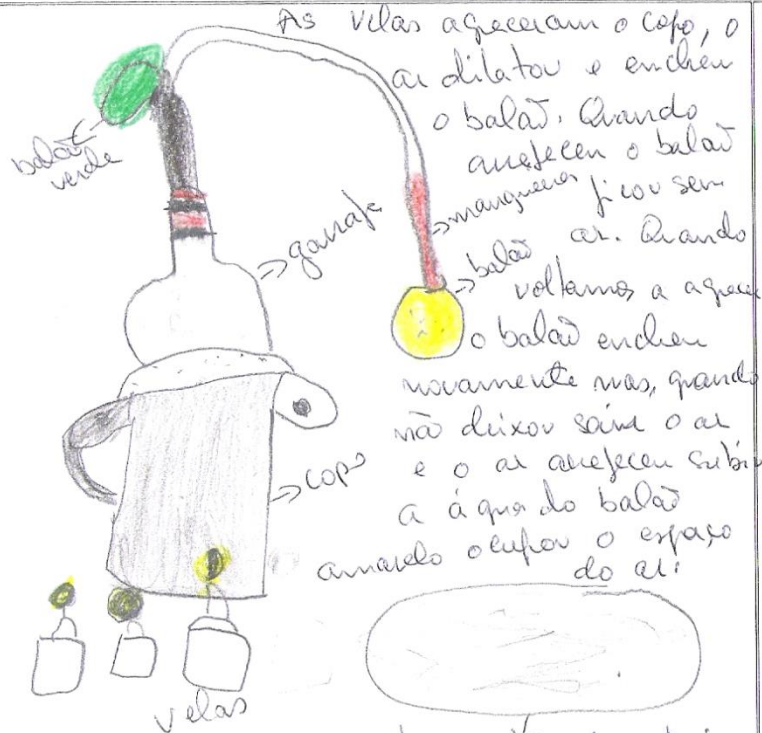 As velas aqueceram o copo, o
ar dilatou e encheu
o balaõ. Quando
arrefeceu o balaõ
ficou sem
ar. Quando
voltamos a aquecer
o balaõ encheu
novamente mas, quando
não deixou sair o ar
e o ar arrefeceu subiu
a água do balaõ
amarelo ocupou o espaço
do ar.
balaõ
verde
mangueiras
garrafa
balaõ
copo
velas